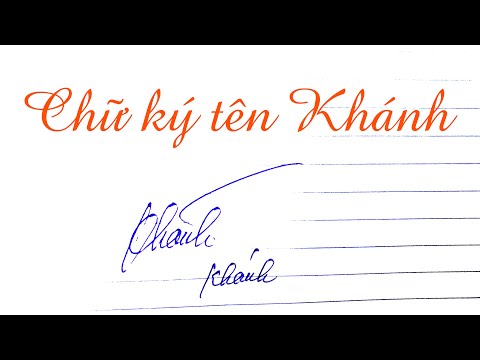 Chữ ký tên Khánh
Khánh
Khánh